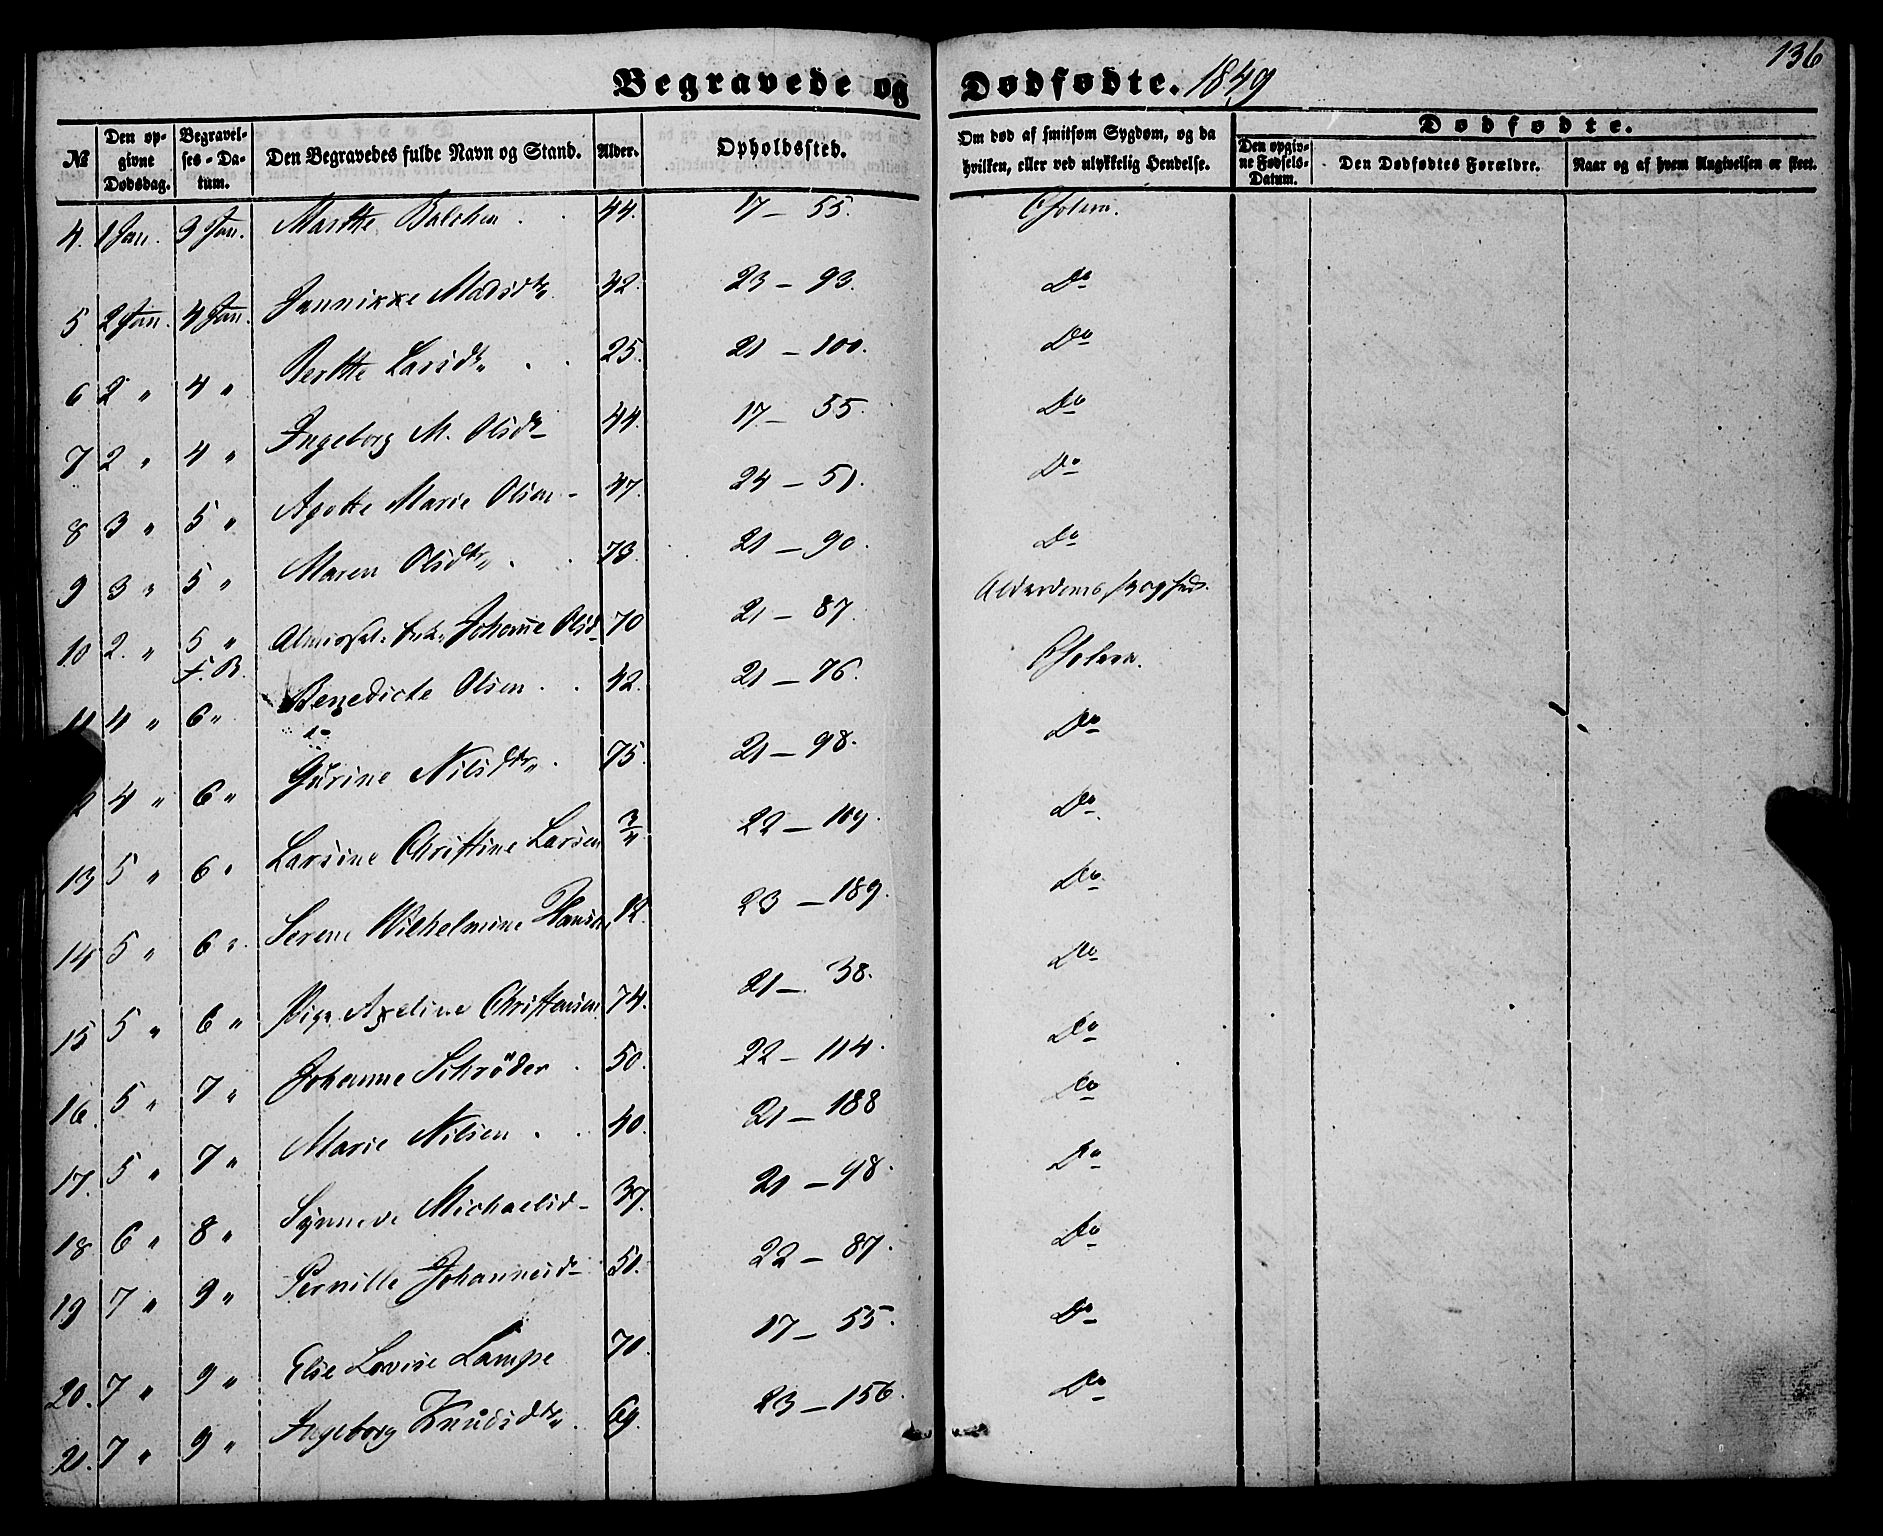 136
Begravede og Dødfødte. 1849
№ Den opgivne Dødsdag. Begravelses-Datum. Den Begravedes fulde Navn og Stand. Alder. Opholdssted. Om død af smitsom Sygdom, og da hvilken, eller ved ulykkelig Hendelse. Dødfødte. Den opgivne Fødsels-Datum. Den Dødfødtes Forældre. Naar og af hvem Angivelsen er skeet.
4. 1 Jan. 3 Jan. Marthe Balchen 44. 17 – 55. Cholera.
5 2 Jan. 4 Jan. Jannikke Madsdtr 42. 23 – 93. Do
6 2 " 4 " Berthe Larsdtr 25. 21 – 100. Do
7 2 " 4 " Ingeborg M. Olsdtr 44. 17 – 55. Do
8 3 " 5 " Agathe Marie Olsen 47. 24 – 51. Do
9 3 " 5 " Maren Olsdtr 73. 21 – 90. Do
10 2. " 5 " F. B. Johanne Olsd 70 21 – 87. Alderdoms svaghed.
11 4 " 6 " Benedicte Olsen 42. 21 – 76. Cholera.
4 " 6 " Gurine Nilsdtr 75. 21 – 98. Do
13 5 " 6 " Larsine Christine Larsen 3/4 22 – 119. Do
14 5 " 6 " Serene Wilhelmine Hansen 12. 23 – 189. Do
15 5 " 6 " Pige Axeline Christensen 74. 21 – 38. Do
16. 5 " 7 " Johanne Schrøder 50. 22 – 114. Do
17. 5 " 7 " Marie Nilsen 40. 21 – 188 Do
18 6 " 8 " Synneve Michaelsd 37. 21 – 98. Do
19 7 " 9 " Pernille Johannesd 50. 22 – 87. Do
20. 7 " 9 " Else Lovise Lampe 70. 17 – 55. Do
21. 7 " 9 " Ingeborg Knudsdtr 69. 23 – 156. Do